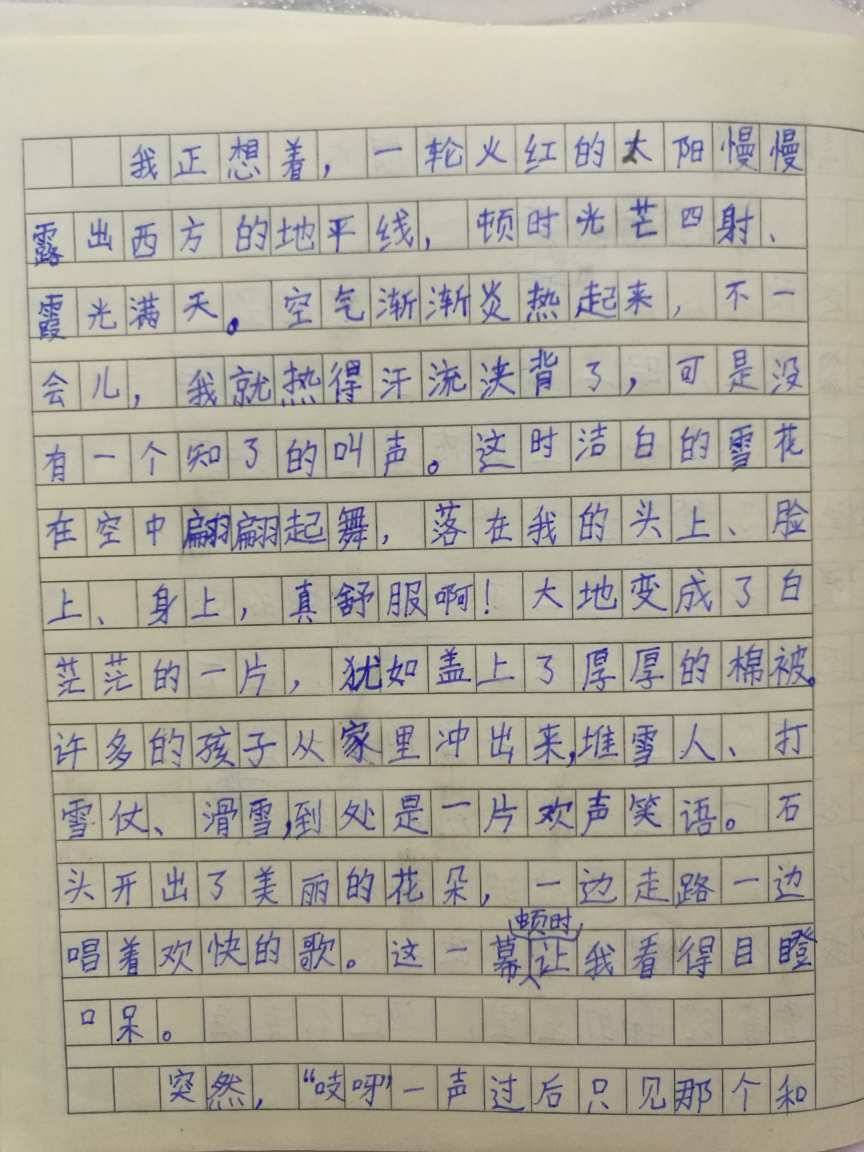 我正想着，一轮火红的太阳慢慢
露出西方的地平线，顿时光芒四射、
霞光满天。空气渐渐炎热起来，不一
会儿，我就热得汗流浃背了，可是没
有一个知了的叫声。这时洁白的雪花
在空中翩翩起舞，落在我的头上、脸
上、身上，真舒服啊！大地变成了白
茫茫的一片，犹如盖上了厚厚的棉被。
许多的孩子从家里冲出来，堆雪人、打
雪仗、滑雪，到处是一片欢声笑语。石
头开出了美丽的花朵，一边走路一边
唱着欢快的歌。这一幕顿时让我看得目瞪
口呆。
突然，“吱呀”一声过后只见那个和